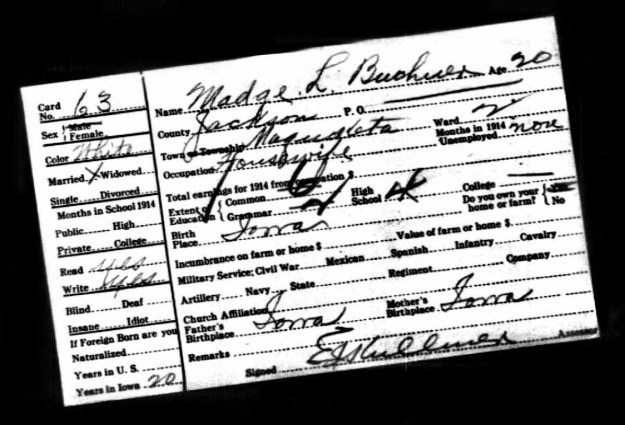 Card No. 63
Sex Male Female
Color White
Married X Widowed
Single Divorced
Months in School 1914
Public High
Private College
Read yes
Write yes
Blind Deaf
Insane Idiot
If Foreign Born are you
Naturalized
Years in U. S.
Years in Iowa 20
Name Madge L. Age 20
County Jackson P. O.
Town or Township Maquoketa Ward 2
Occupation Housewife Months in 1914 Unemployed none
Total earnings for 1914 from occupation $
Extent Education Common Grammar High School 4 College
Birth Place Iowa Do you own your home or farm? Yes No
Incumbrance on farm or home $ Value of farm or home $
Military Service: Civil War Mexican Spanish Infantry Cavalry
Artillery Navy State Regiment Company
Church Affiliation
Father's Birthplace Iowa Mother's Birthplace Iowa
Remarks
Signed Assessor